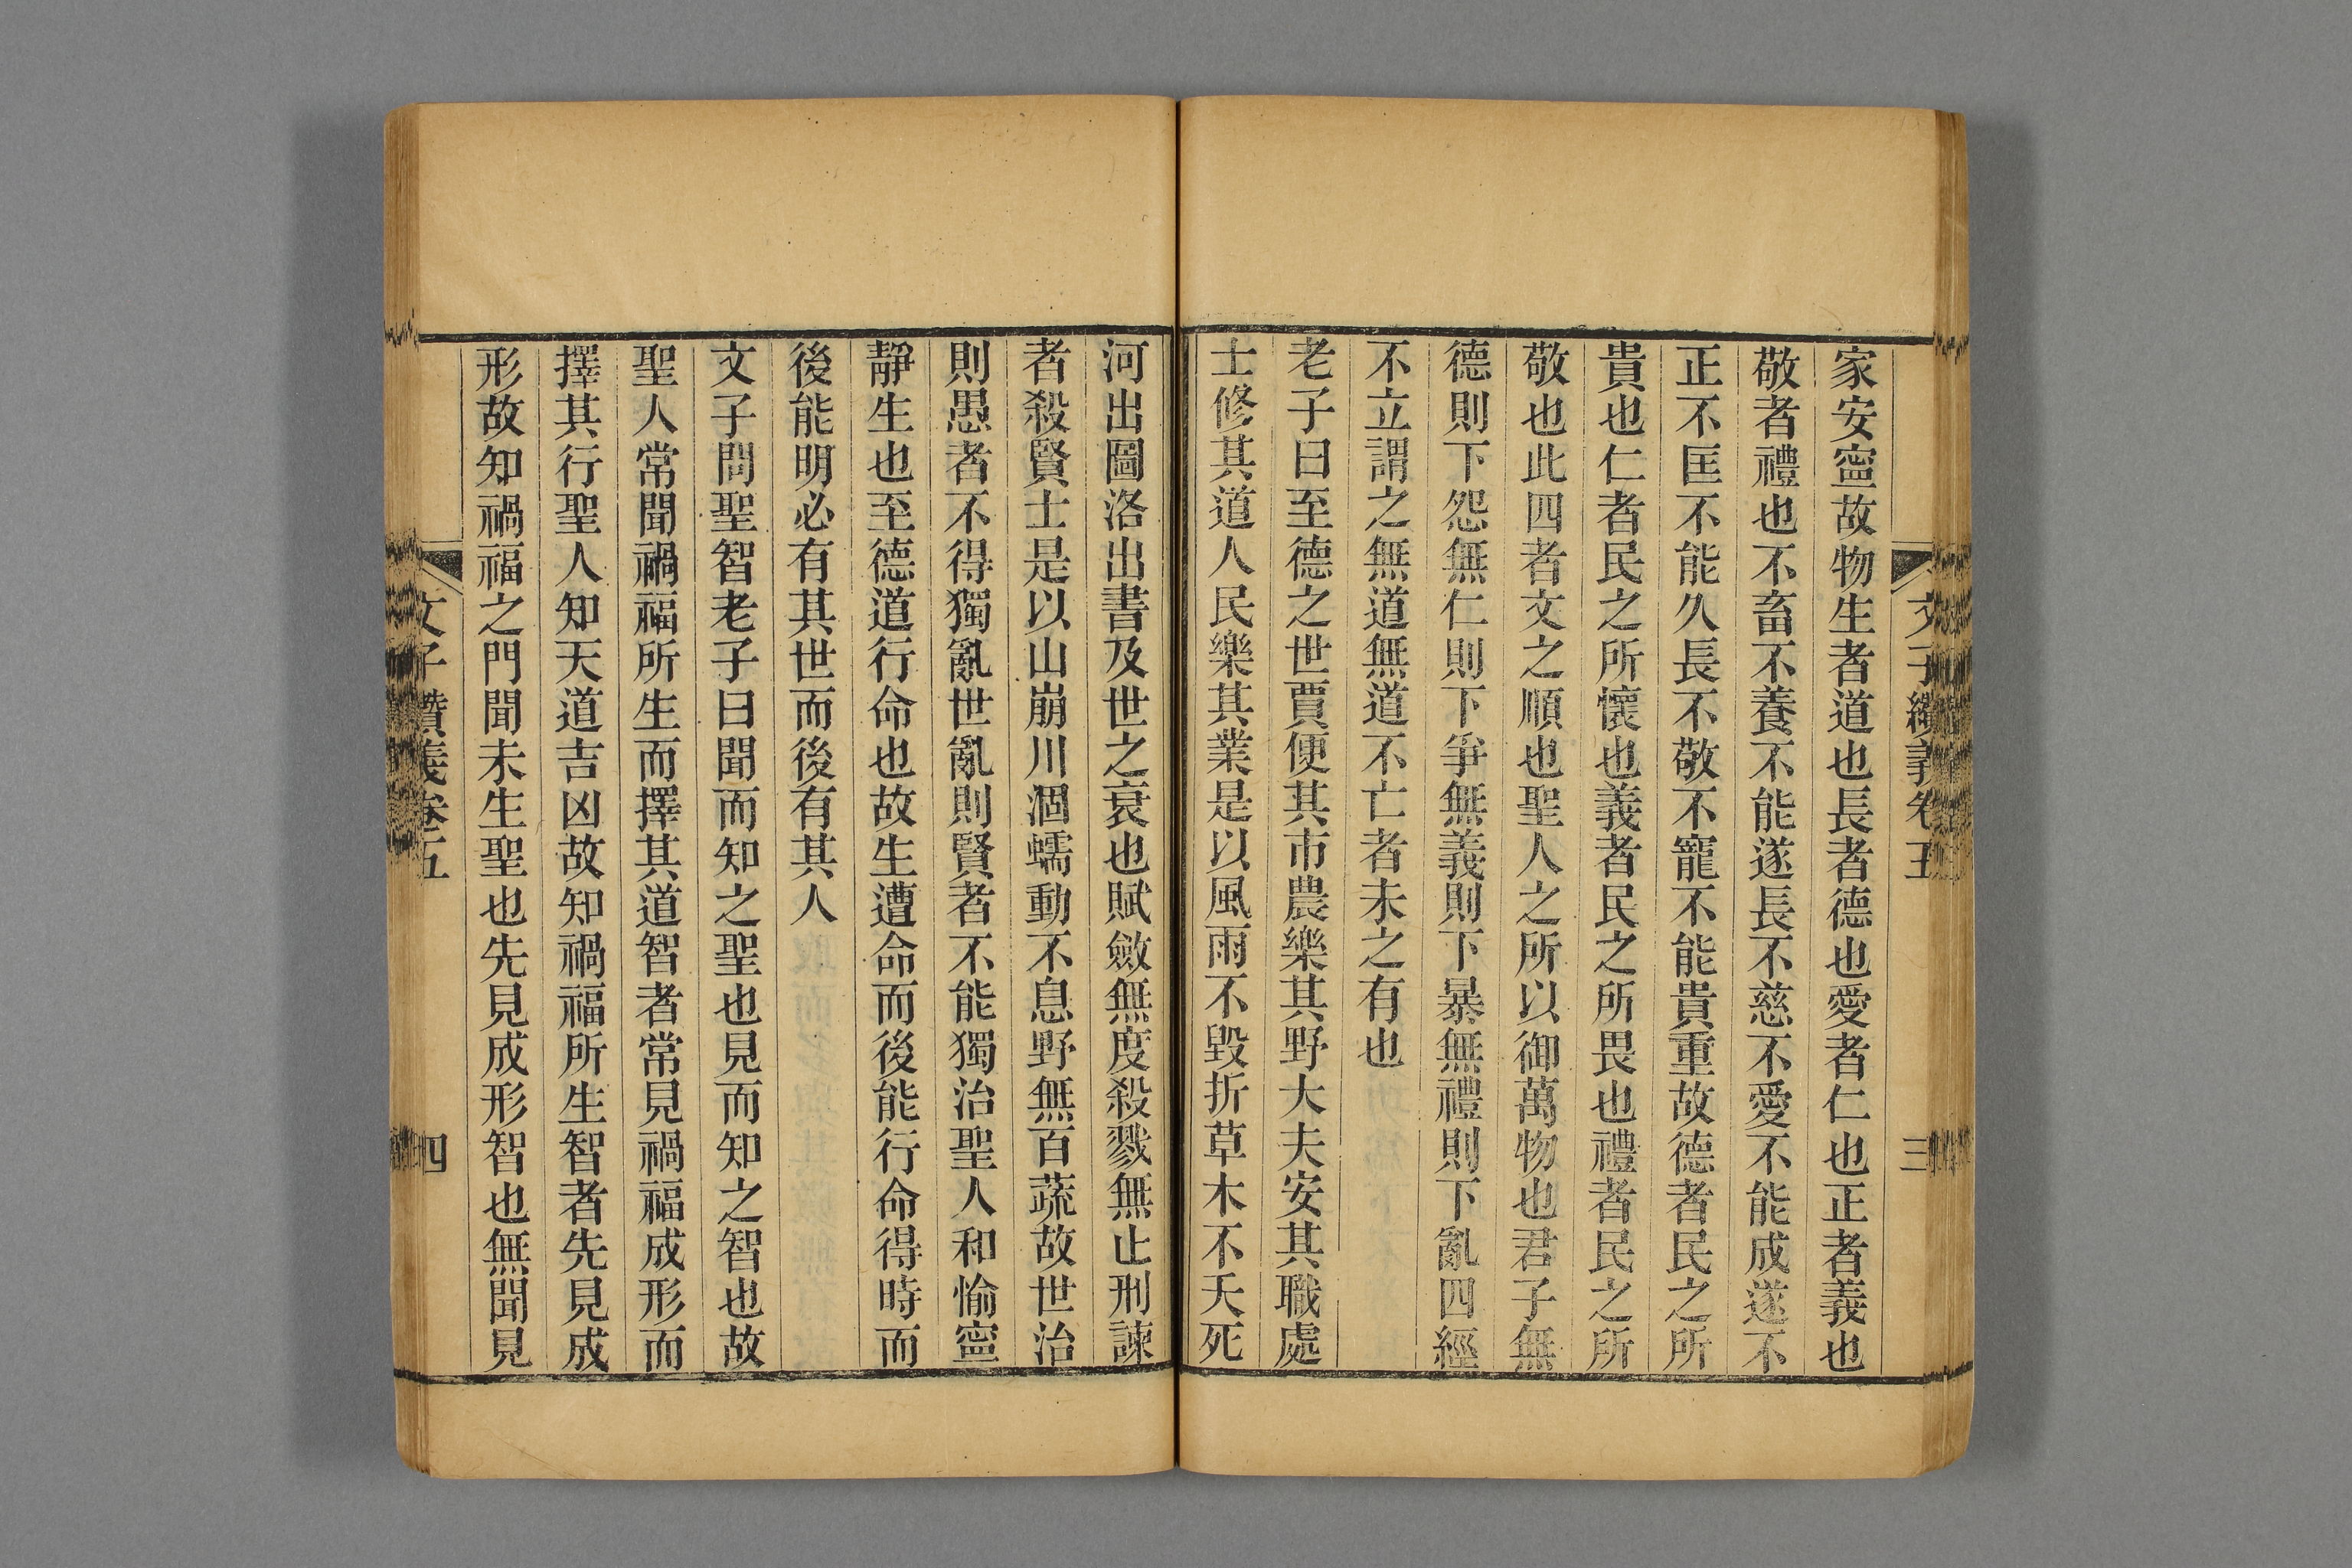 文子纘義卷五
三
家安寍故物生者道也長者德也愛者仁也正者義也
敬者禮也不畜不養不能遂長不慈不愛不能成遂不
正不匡不能久長不敬不寵不能貴重故德者民之所
貴也仁者民之所懷也義者民之所畏也禮者民之所
敬也此四者文之順也聖人之所以御萬物也君子無
德則下怨無仁則下爭無義則下暴無禮則下亂四經
不立謂之無道無道不亡者未之有也
老子曰至德之世賈便其市農樂其野大夫安其職處
士修其道人民樂其業是以風雨不毀折草木不夭死
河出圖洛出書及世之衰也賦斂無度殺戮無止刑諫
者殺賢士是以山崩川涸蠕動不息野無百蔬故世治
則愚者不得獨亂世亂則賢者不能獨治聖人和愉寍
靜生也至德道行命也故生遭命而後能行命得時而
後能明必有其世而後有其人
文子問聖智老子曰聞而知之聖也見而知之智也故
聖人常聞禍福所生而擇其道智者常見禍福成形而
擇其行聖人知天道吉凶故知禍福所生智者先見成
形故知禍福之門聞未生聖也先見成形智也無聞見
文子纘義卷五
四